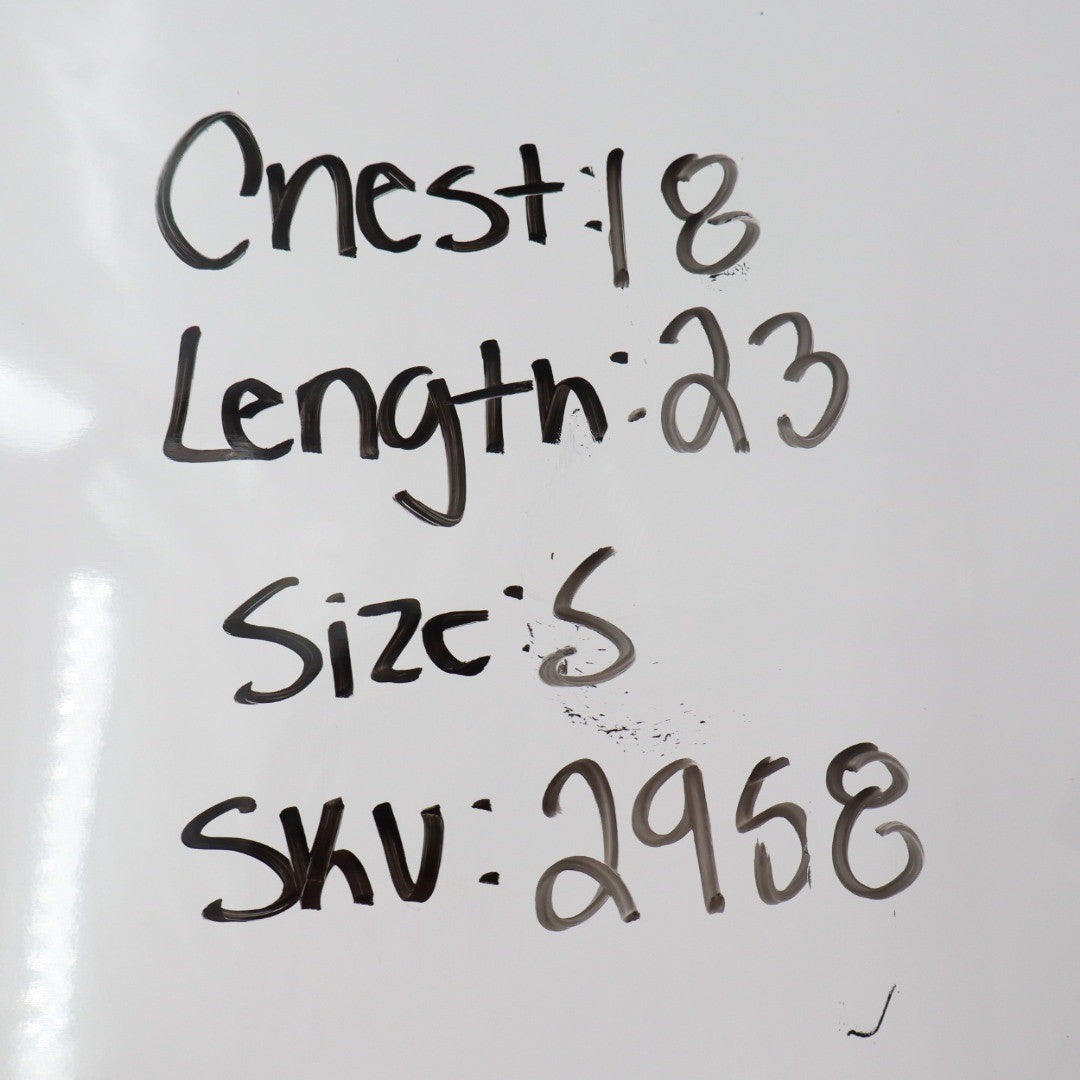 Chest:18
Length:23
Size:S
SKU:2958